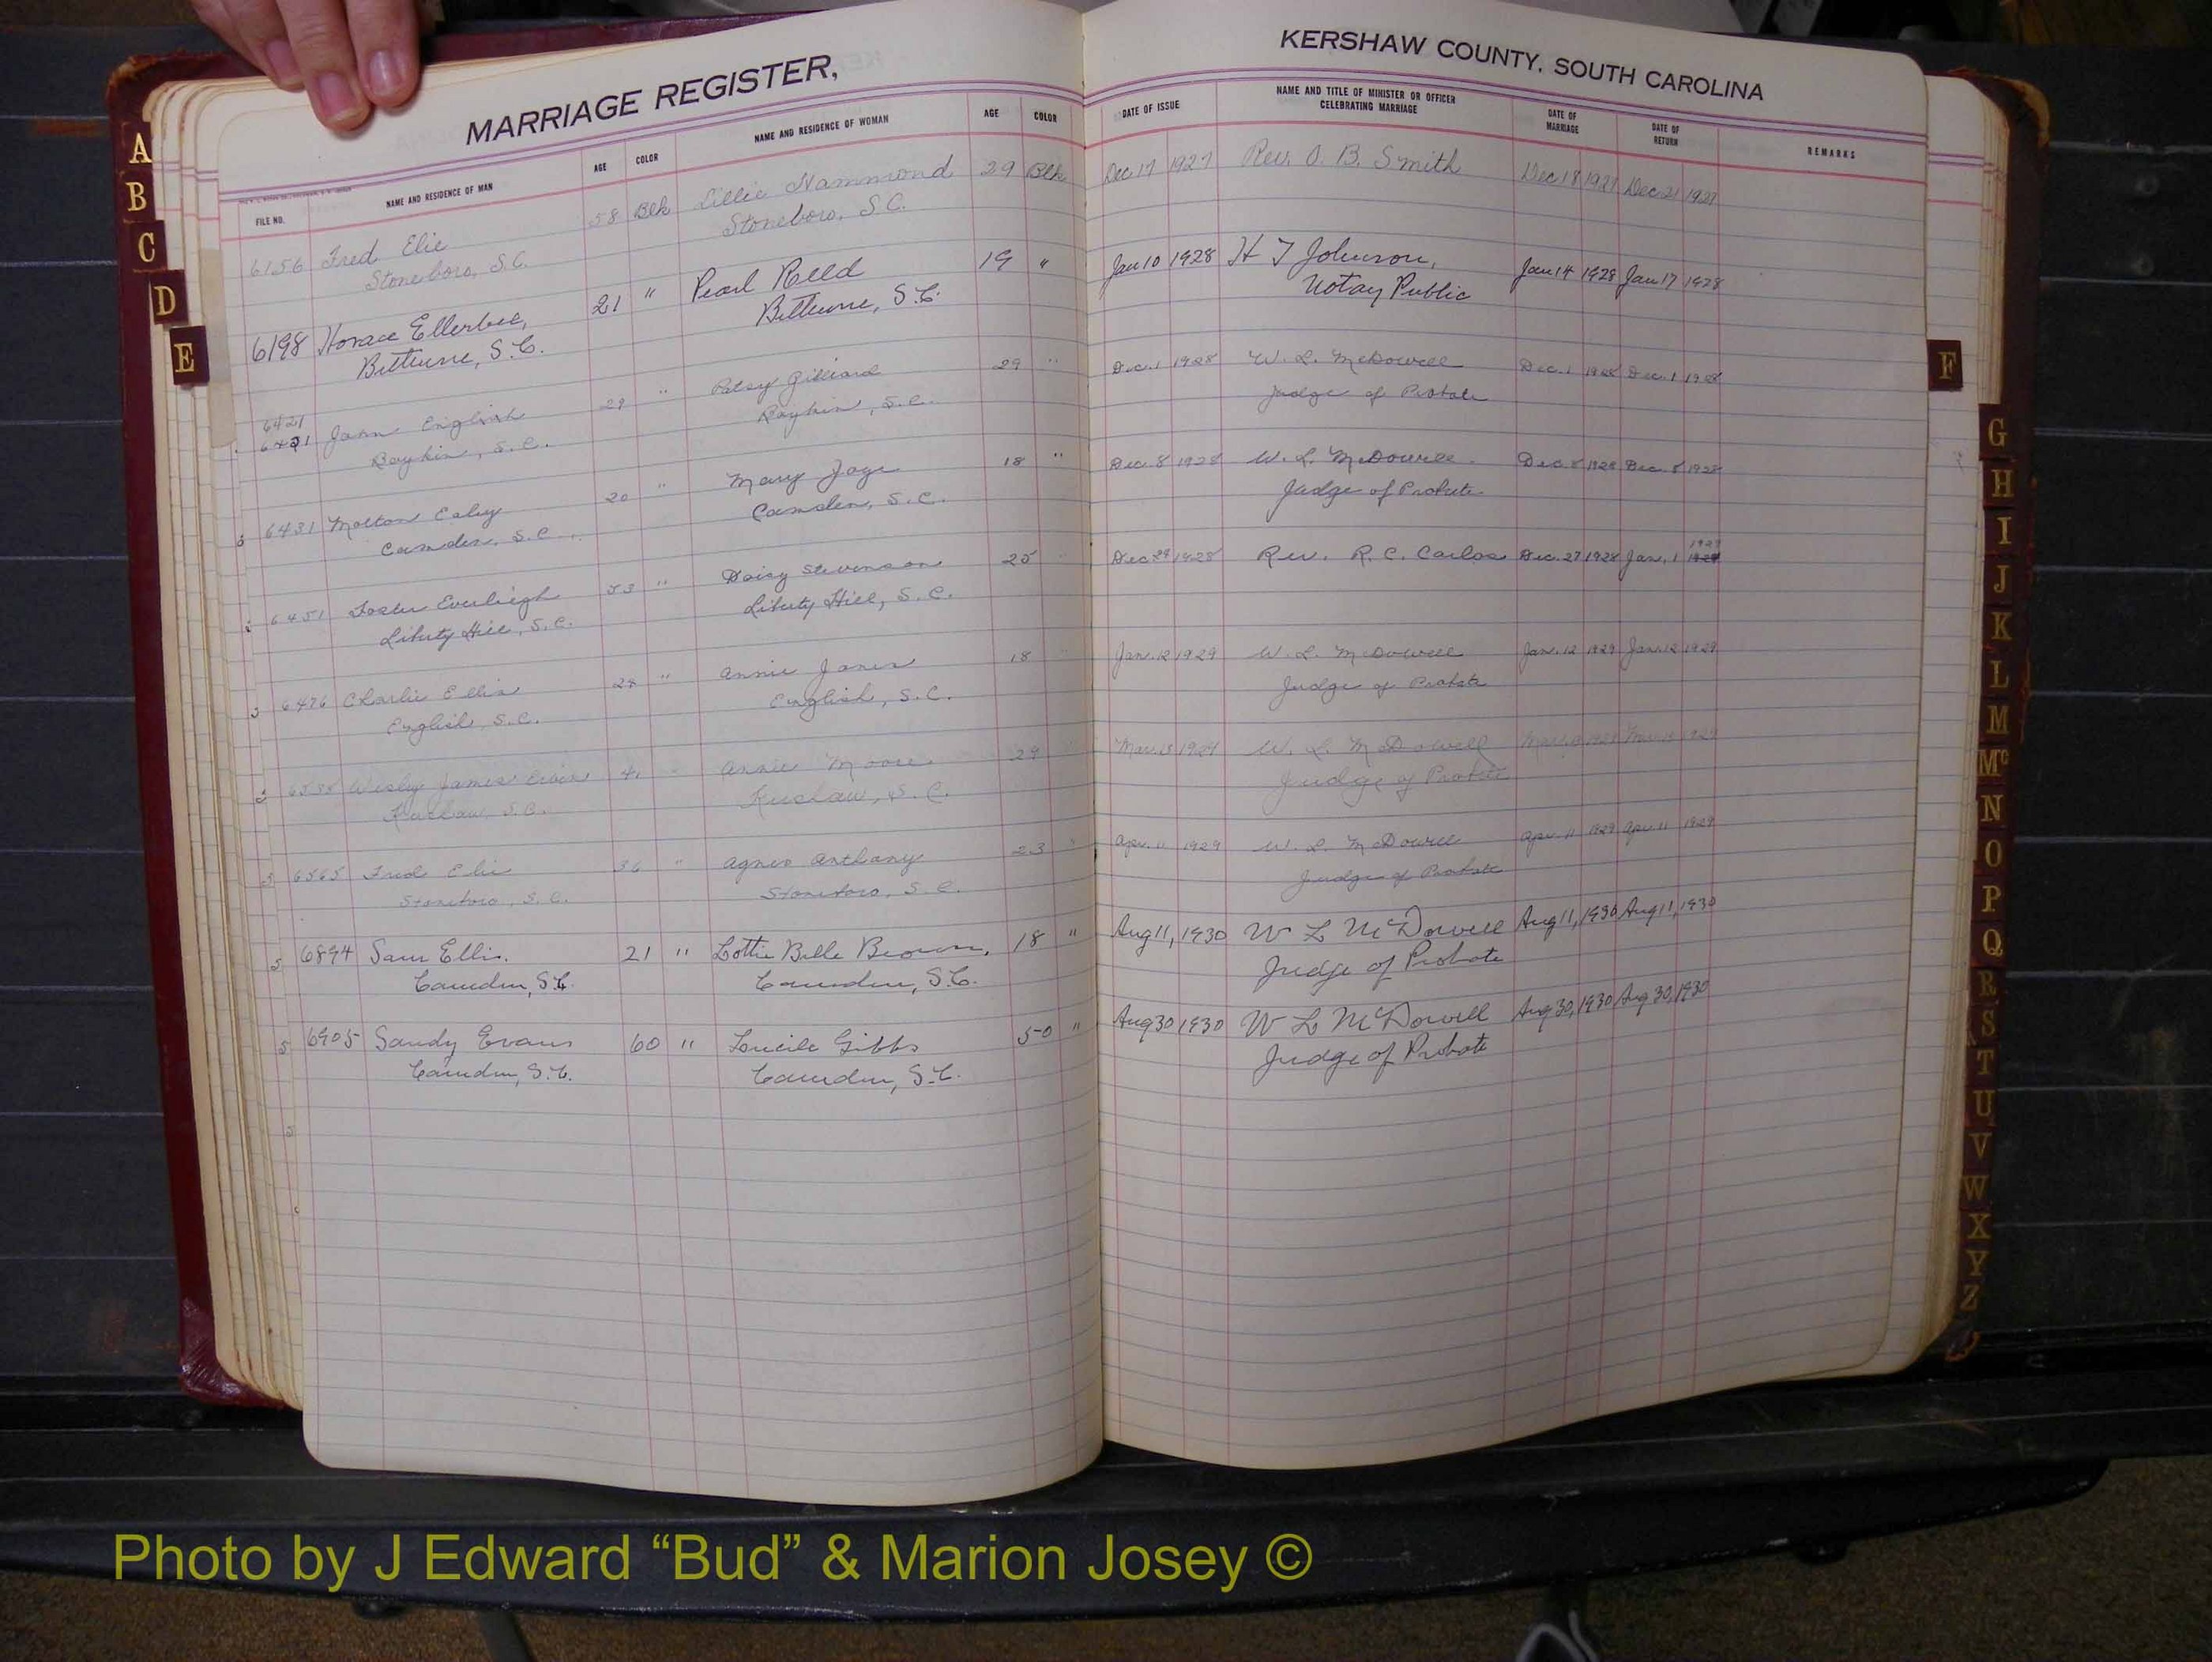 MARRIAGE REGISTER,
KERSHAW COUNTY, SOUTH CAROLINA
FILE NO. NAME AND RESIDENCE OF MAN AGE COLOR NAME AND RESIDENCE OF WOMAN AGE COLOR DATE OF ISSUE NAME AND TITLE OF MINISTER OR OFFICER CELEBRATING MARRIAGE DATE OF MARRIAGE DATE OF RETURN REMARKS
6156 Fred Elie 58 Blk Lillie Hammond 29 Blk Dec 17 1927 Rev. O. B. Smith Dec 18 1927 Dec 21 1927
Stoneboro, S.C. Stoneboro, S.C.
6198 Horace Ellerbee, 21 " Pearl Reed 19 " Jan 10 1928 H T Johnson, Jan 14 1928 Jan 17 1928
Bethune, S.C. Bethune, S.C. Notary Public
6421
6421 John English 29 " Patsy Gilliard 29 " Dec. 1 1928 W. L. McDowell Dec. 1 1928 Dec. 1 1928
Boykin, S.C. Boykin, S.C. Judge of Probate
6431 Molton 20 " Mary Joye 18 " Dec. 8 1928 W. L. McDowell Dec. 8 1928 Dec. 8 1928
Camden, S.C. Camden, S.C. Judge of Probate
6451 Foster Everleigh 53 " Daisy Stevenson 25 " Dec 1928 Rev. R. C. Carlos Dec. 27 1928 Jan. 1 1929
Liberty Hill, S.C. Liberty Hill, S.C.
6476 Charlie Ellis 28 " Annie Jones 18 " Jan. 12 1929 W. L. McDowell Jan. 12 1929 Jan. 12 1929
English, S.C. English, S.C. Judge of Probate
Wesley James " Annie Moore 29 " Mar. 1929 W. L. McDowell 1929
Kershaw, S.C. Kershaw, S.C. Judge of Probate
6565 Fred Elie 36 " Agnes Anthany 23 " Apr. 11 1929 W. L. McDowell Apr. 11 1929 Apr. 11 1929
Stoneboro, S.C. Stoneboro, S.C. Judge of Probate
6894 Sam Ellis. 21 " Lottie Belle Brown, 18 " Aug 11, 1930 W L McDowell Aug 11, 1930 Aug 11, 1930
Camden, S.C. Camden, S.C. Judge of Probate
6905 Sandy Evans 60 " Lucile Gibbs 50 " Aug 30 1930 W L McDowell Aug 30, 1930 Aug 30, 1930
Camden, S.C. Camden, S.C. Judge of Probate
A
B
C
D
E
F
G
H
I
J
K
L
M
Mc
N
O
P
Q
R
S
T
U
V
W
X
Y
Z
Photo by J Edward “Bud” & Marion Josey ©